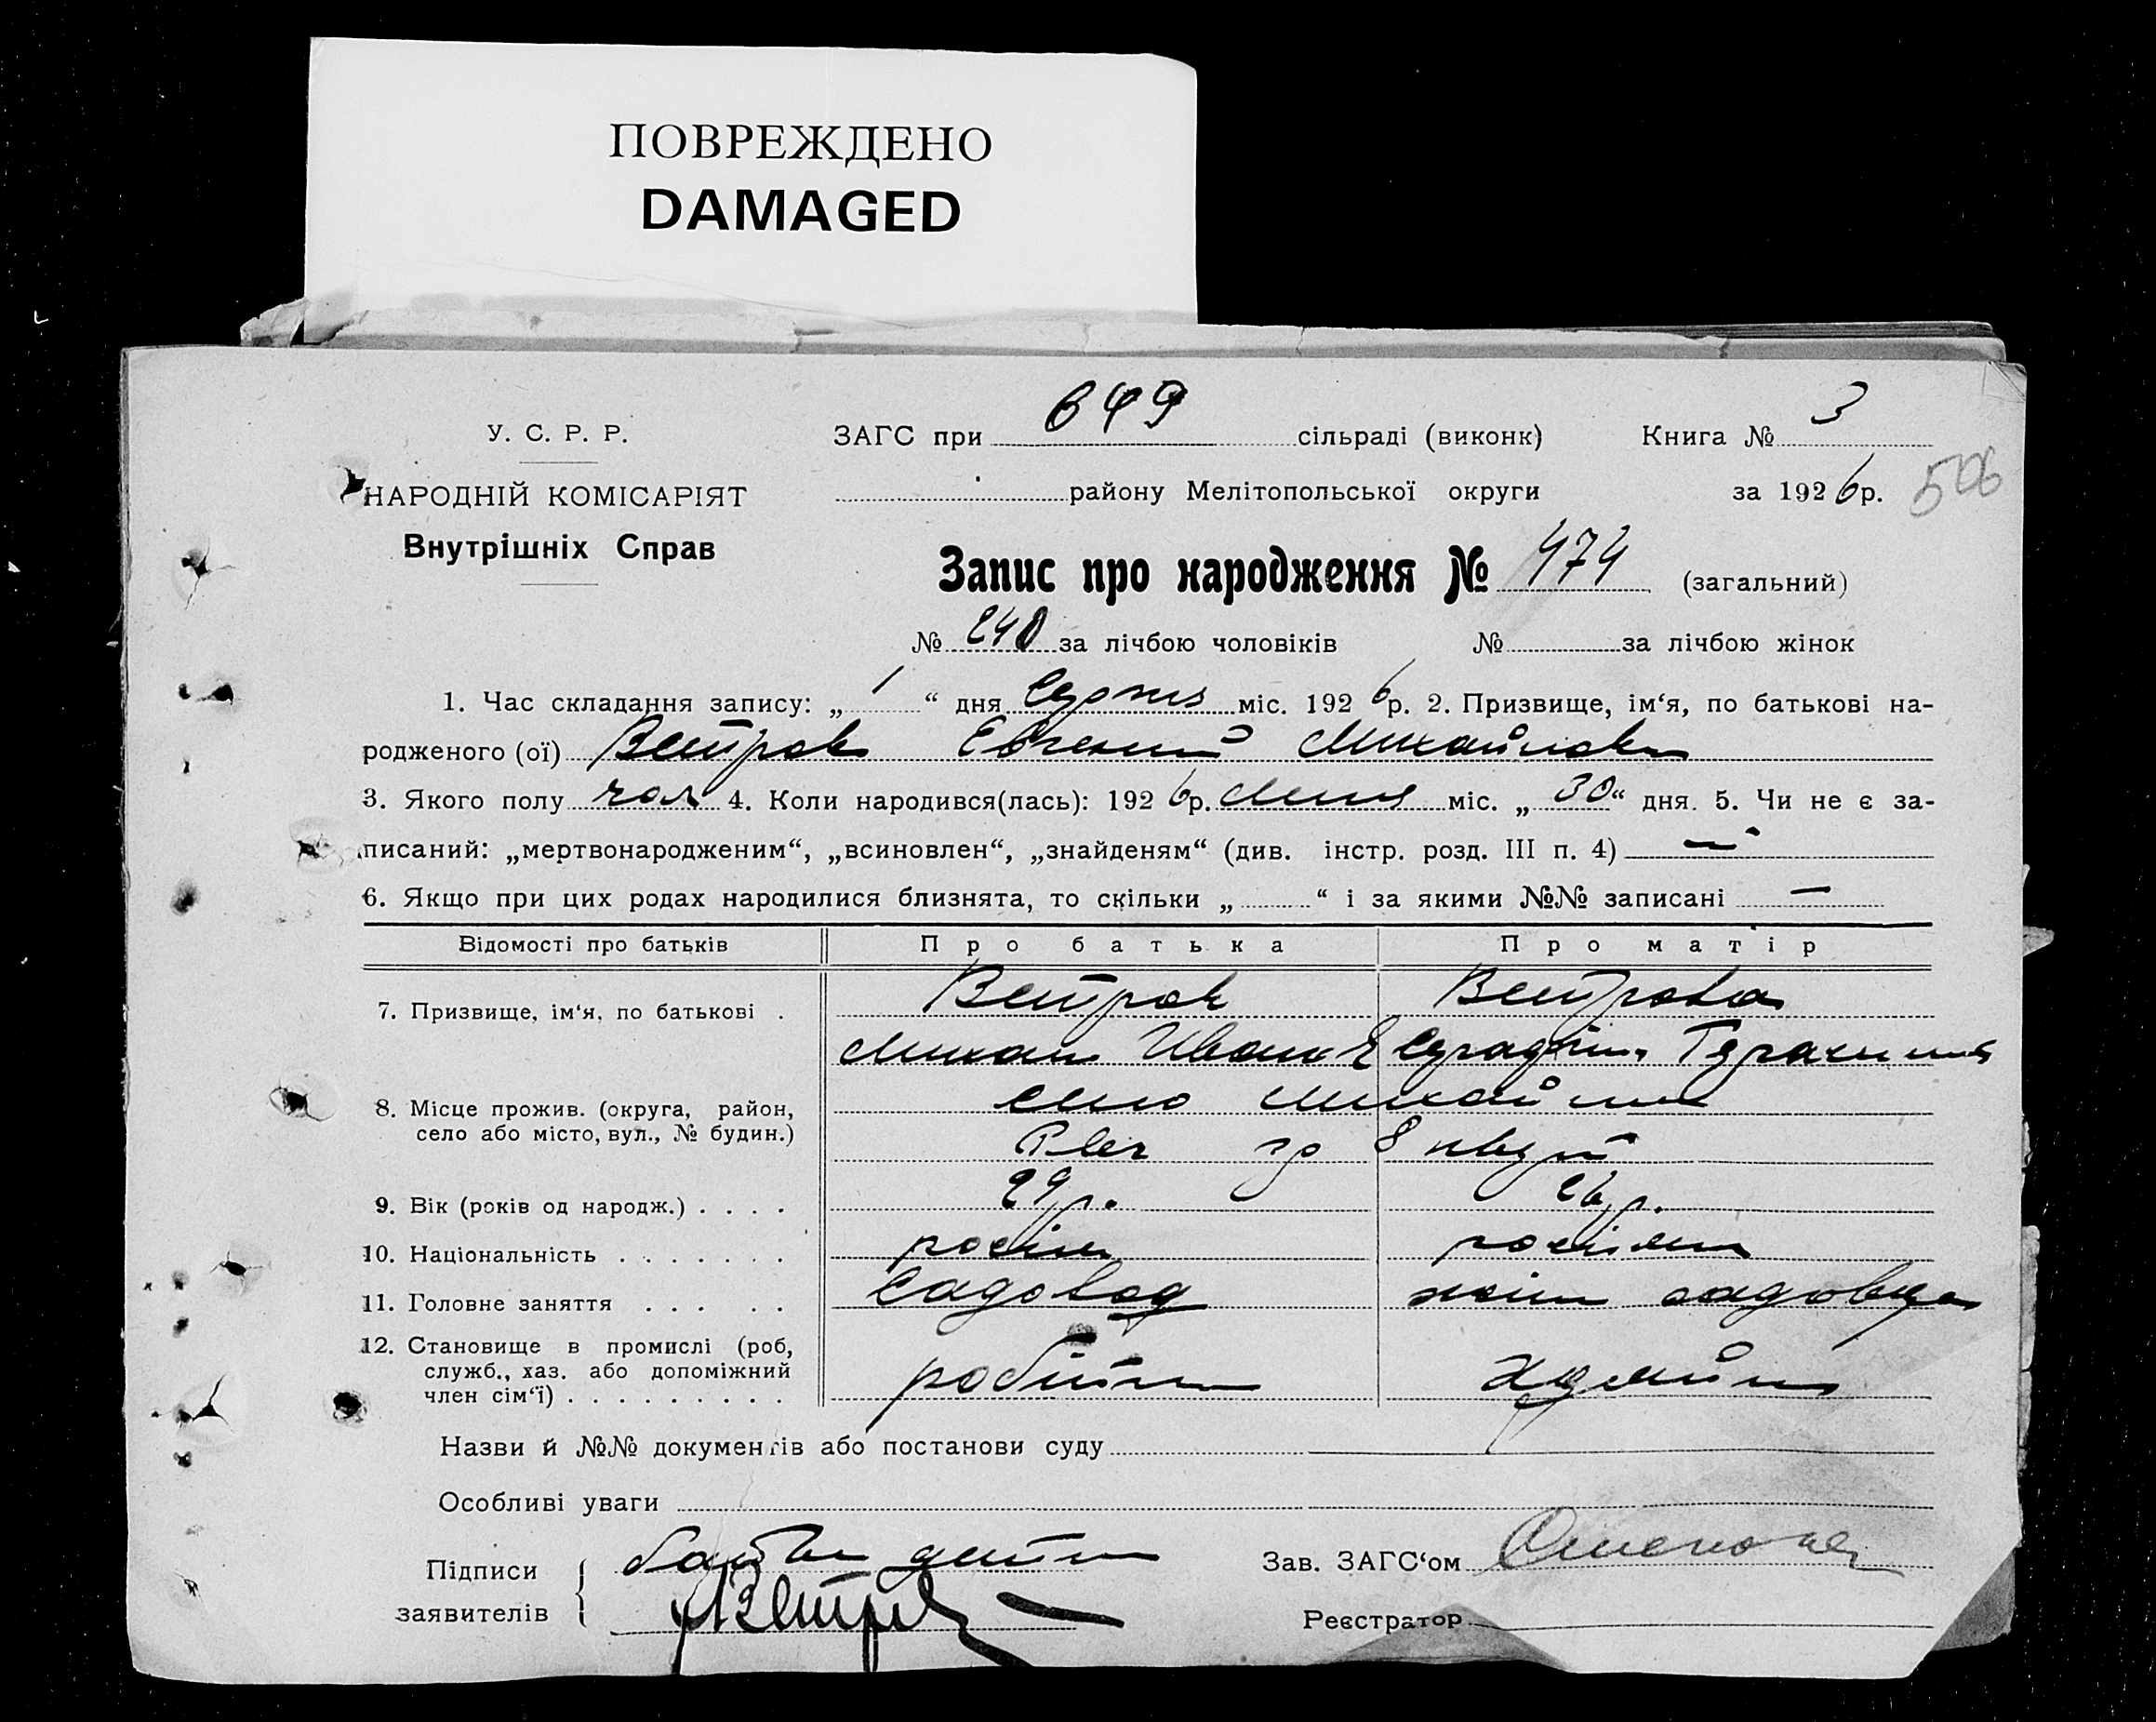 ПОВРЕЖДЕНО
DAMAGED
У. С. Р. Р.
НАРОДНІЙ КОМІСАРІЯТ
Внутрішніх Справ
ЗАГС при 649 сільраді (виконк) Книга № 3
району Мелітопольської округи за 1926 р. 506
Запис про народження № 474 (загальний)
№ 240 за лічбою чоловіків № за лічбою жінок
1. Час складання запису: „ 1 “ дня Серпня міс. 1926 р. 2. Призвище, ім‘я, по батькові на-
родженого (ої) Ветров Евгений Михайлов
3. Якого полу чол 4. Коли народився(лась): 1926 р. Липня міс. „ 30 “ дня. 5. Чи не є за-
писаний: „мертвонародженим“, „всиновлен“, „знайденям“ (див. інстр. розд. III п. 4) —
6. Якщо при цих родах народилися близнята, то скільки „ “ і за якими №№ записані —
Відомості про батьків Про батька Про матір
7. Призвище, ім‘я, по батькові . Ветров Ветрова
Михаил Иван
8. Місце прожив. (округа, район,
село або місто, вул., № будин.)
9. Вік (років од народж.) . . . . 29 р. 26 р.
10. Національність . . . . . . . росіян росіянн
11. Головне заняття . . . . . Садовод жін садовода
12. Становище в промислі (роб,
служб., хаз. або допоміжний
член сім‘ї) . . . . . . . . . робітн
Назви й №№ документів або постанови суду
Особливі уваги
Підписи
заявителів Ветров
Зав. ЗАГС‘ом
Реєстратор